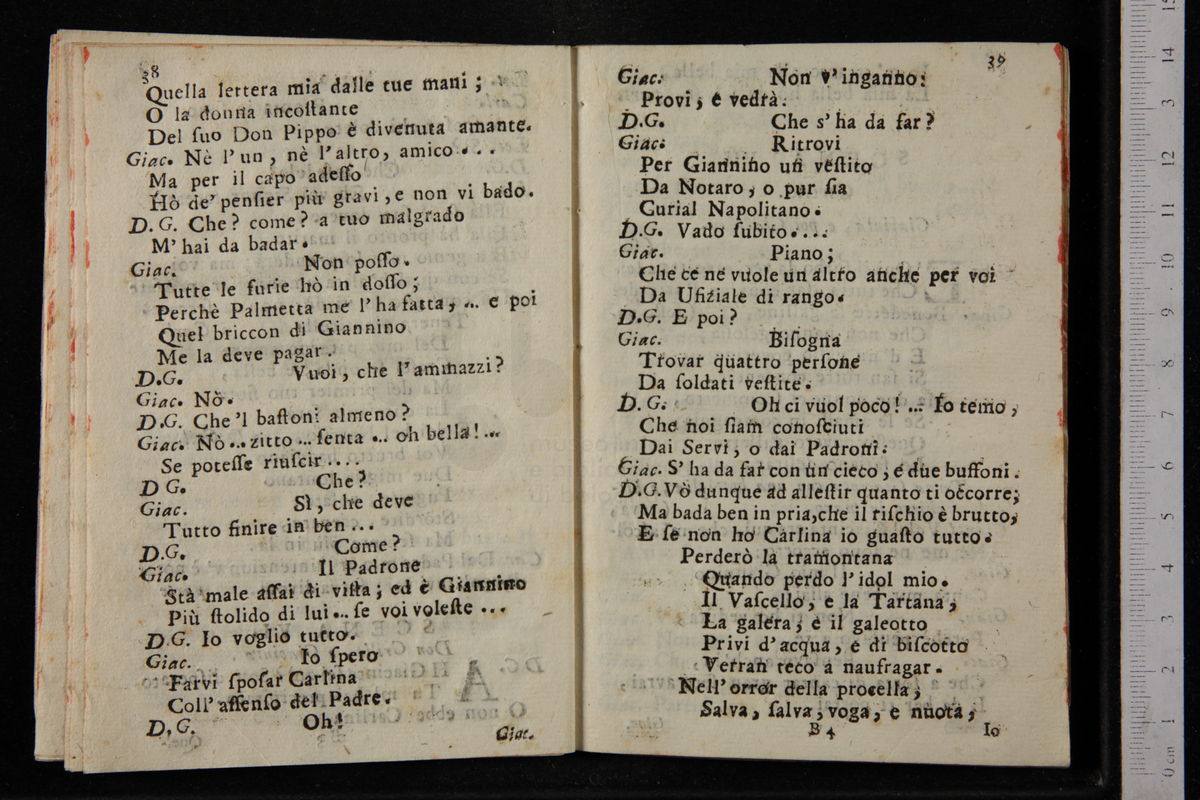 38
Quella lettera mia dalle tue mani;
O la donna incoſtante
Del ſuo Don Pippo è divenuta amante.
Giac. Nè l'un, nè l'altro, amico...
Ma per il capo adeſſo
Hò de' penſier più gravi, e non vi bado.
D. G. Che? come? a tuo malgrado
M'hai da badar.
Giac. Non poſſo.
Tutte le furie hò in doſſo;
Perchè Palmetta me l'ha fatta, ... e poi
Quel briccon di Giannino
Me la deve pagar.
D.G. Vuoi, che l'ammazzi?
Giac. Nò.
D.G. Che 'l baſtoni almeno?
Giac. Nò ... zitto ... ſenta ... oh bella! ...
Se poteſſe riuſcir ....
D G. Che?
Giac. Sì, che deve
Tutto finire in ben ...
D.G. Come?
Giac. Il Padrone
Stà male aſſai di viſta; ed è Giannino
Più ſtolido di lui... ſe voi voleſte ...
D.G. Io voglio tutto.
Giac. Io ſpero
Farvi ſpoſar Carlina
Coll' aſſenſo del Padre.
D, G. Oh!
Giac.
39
Giac. Non v'inganno:
Provi, e vedrà.
D.G. Che s'ha da far?
Giac. Ritrovi
Per Giannino un veſtito
Da Notaro, o pur ſia
Curial Napolitano.
D.G. Vado ſubito....
Giac. Piano;
Che ce ne vuole un altro anche per voi
Da Ufiziale di rango.
D.G. E poi?
Giac. Biſogna
Trovar quattro perſone
Da ſoldati veſtite.
D. G. Oh ci vuol poco! ... Io temo,
Che noi ſiam conoſciuti
Dai Servi, o dai Padroni.
Giac. S'ha da far con un cieco, e due buffoni.
D.G. Vò dunque ad alleſtir quanto ti occorre;
Ma bada ben in pria, che il riſchio è brutto,
E ſe non ho Carlina io guaſto tutto.
Perderò la tramontana
Quando perdo l'idol mio.
Il Vaſcello, e la Tartana,
La galera, e il galeotto
Privi d'acqua, e di biſcotto
Verran teco a naufragar.
Nell'orror della procella,
Salva, ſalva, voga, e nuota,
B 4
Io